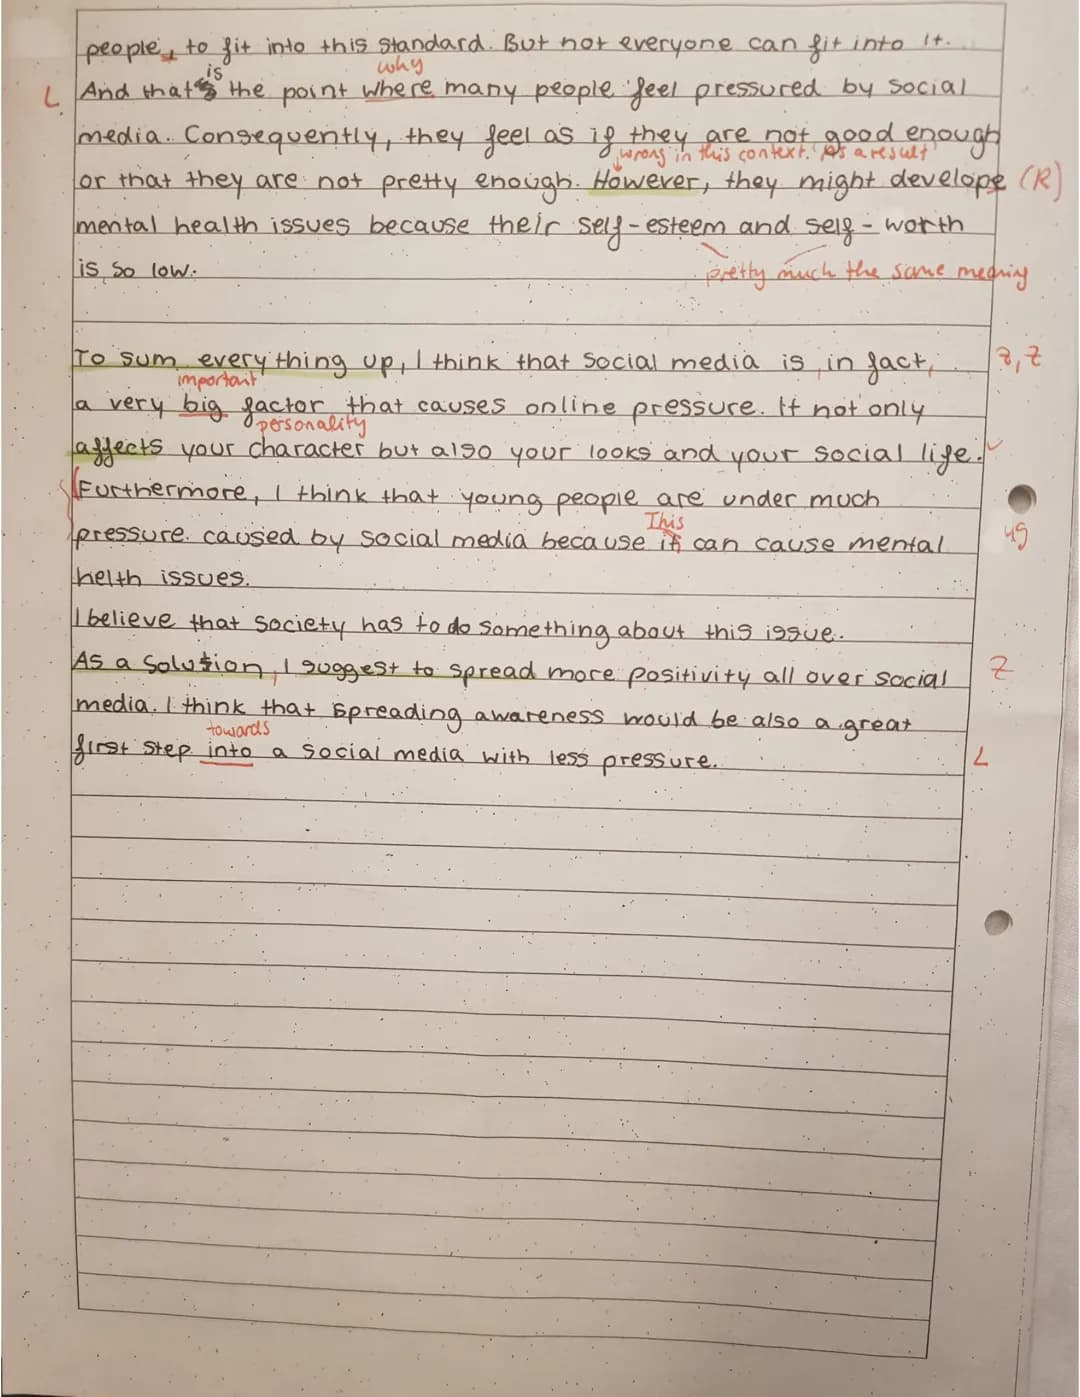 people, to fit into this standard. But not everyone can fit into it.
is why
L And that's the point where many people feel pressured by social
media. Consequently, they feel as if they are not good enough
wrong in this context. As a result
or that they are not pretty enough. However, they might develope (R)
mental health issues because their self-esteem and self-worth
is so low. pretty much the same meaning
To sum everything up, I think that social media is, in fact, Z, Z
important
a very big factor that causes online pressure. It not only
personality
affects your character but also your looks and your social life.
Furthermore, I think that young people are under much
This
pressure caused by social media because it can cause mental
helth issues.
I believe that society has to do something about this issue.
As a solution, I suggest to spread more positivity all over social Z
media. I think that spreading awareness would be also a great
towards
first step into a social media with less pressure. L